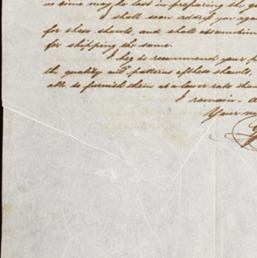 no time may be lost in preparing the
I shall soon address you again
for these shawls, and shall
for shipping the same.
I beg to recommend your
the quality and patterns of these shawls,
able to furnish them at a lower rate than
I remain
Your